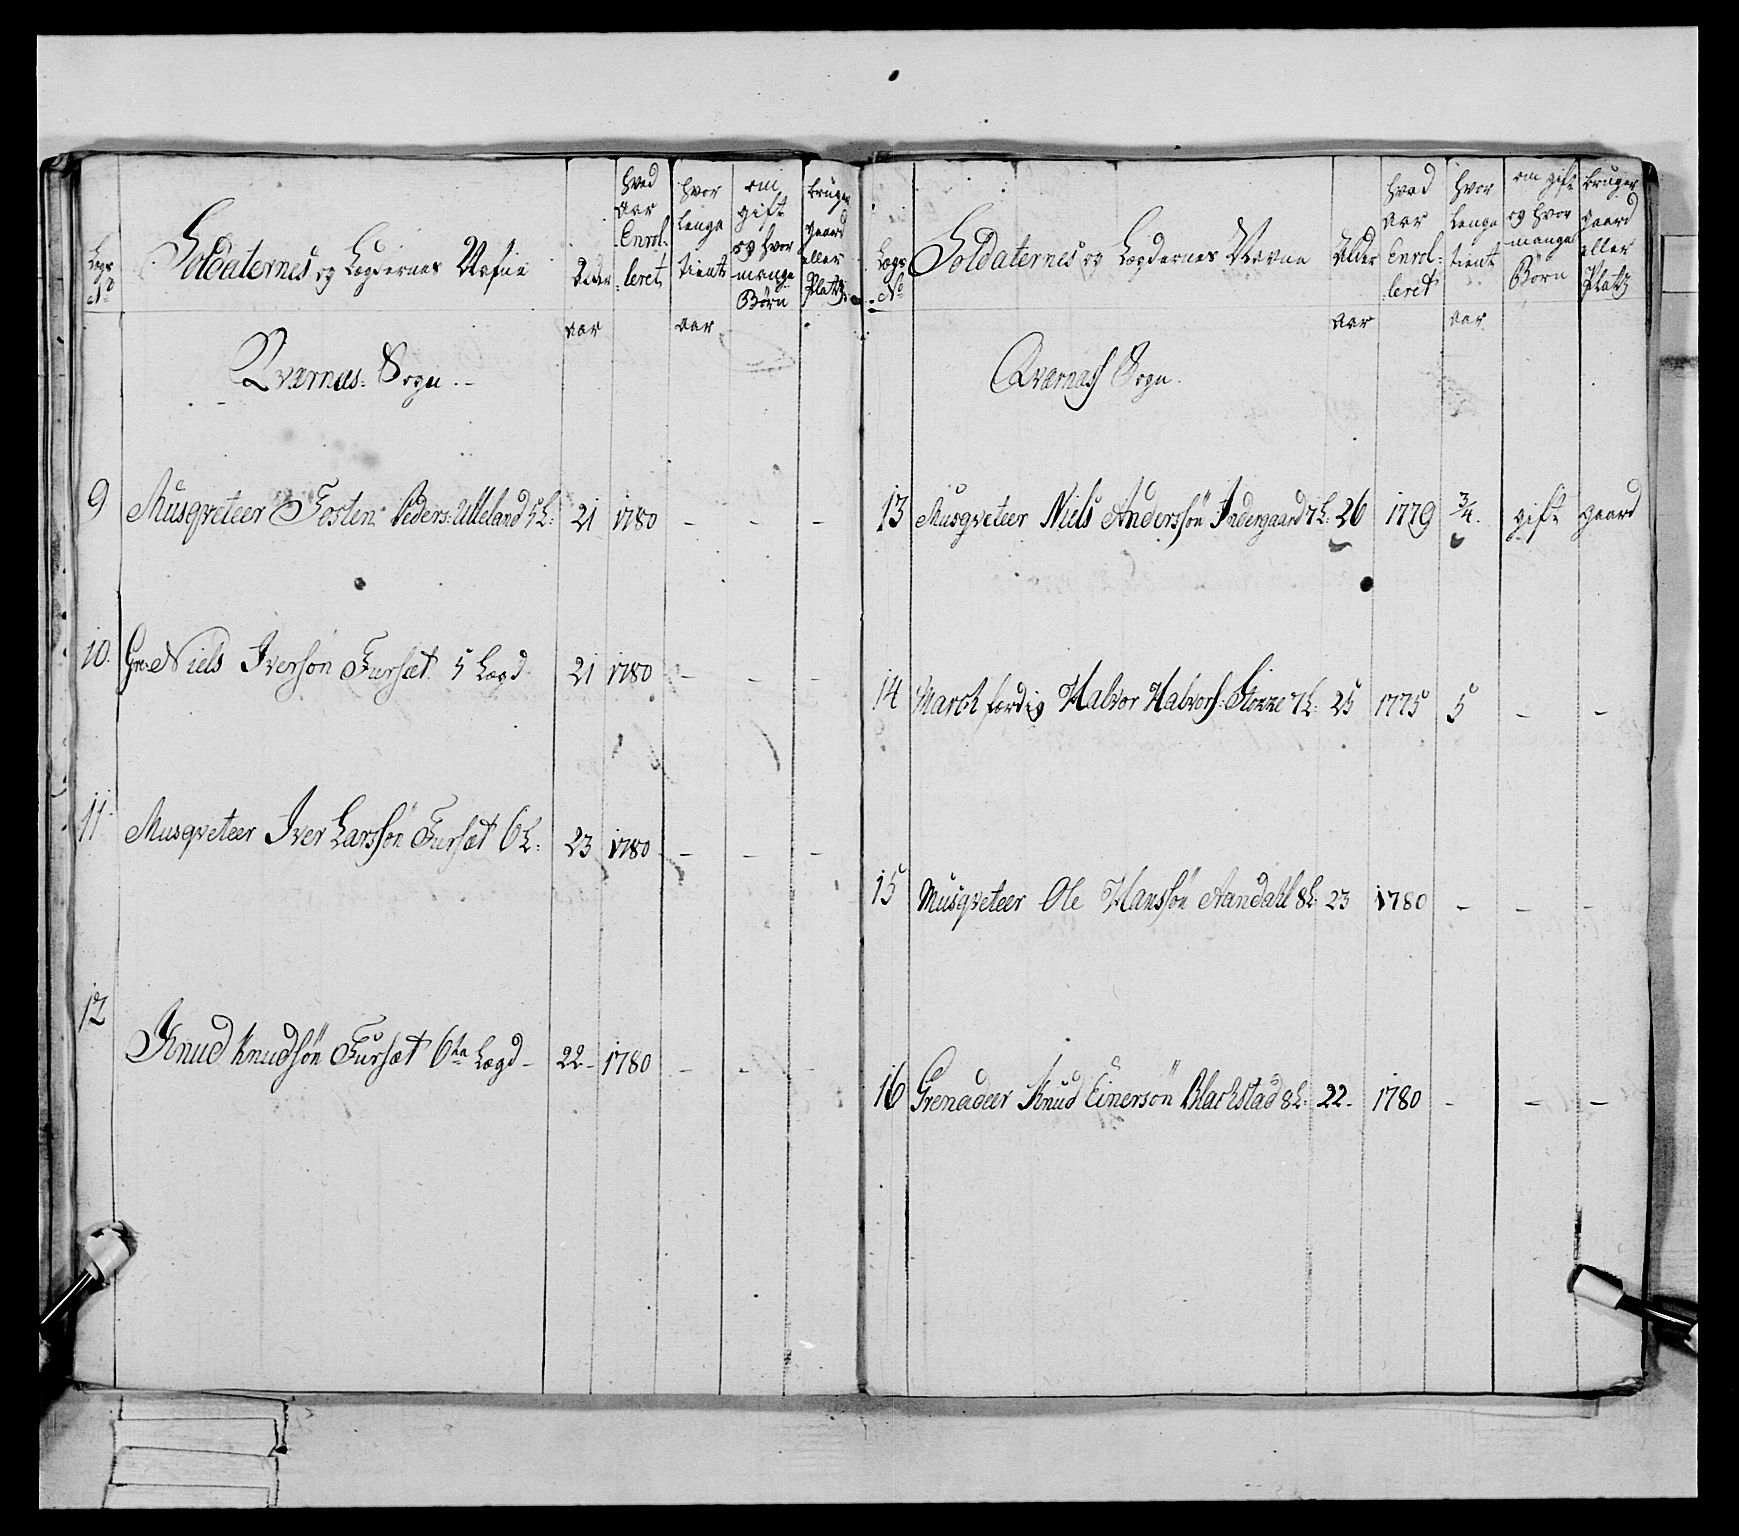 Legs No
Soldaternes og Lægdernes Nafne
Alder aar
hvad aar Enrol-leret
hvor lenge tient aar
om gift og hvor mange Børn
bruger gaard eller Platz
Qværnæs: Sogn.
9 Musqveteer Tosten Peders: Ulleland 5 L: 21 1780 - - -
10. Gre: Niels Iversøn Fursæt 5 Lægd 21 1780 - - -
11 Musqveteer Iver Larssøn Fursæt 6 L: 23 1780 - - -
12 Knud Knudsøn Fursæt 6te Lægd - 22 - 1780 - - -
Lægs No
Soldaternes og Lægdernes Navne
Alder aar
hvad aar Enrol-leret
hvor lenge tient aar
om gift og hvor mange Børn
bruger gaard eller Platz
Qværnæss Sogn.
13 Musqveteer Niels Anderssøn Indergaard 7 L: 26 1779 3/4. gift gaard
14 March færdig Halvor Halvors: Stokke 7 L: 25 1775 5 - -
15 Musqveteer Ole Hanssøn Aandahl 8 L: 23 1780 - - -
16 Grenadeer Knud Einersøn Blachstad 8 L: 22 - 1780 - - -